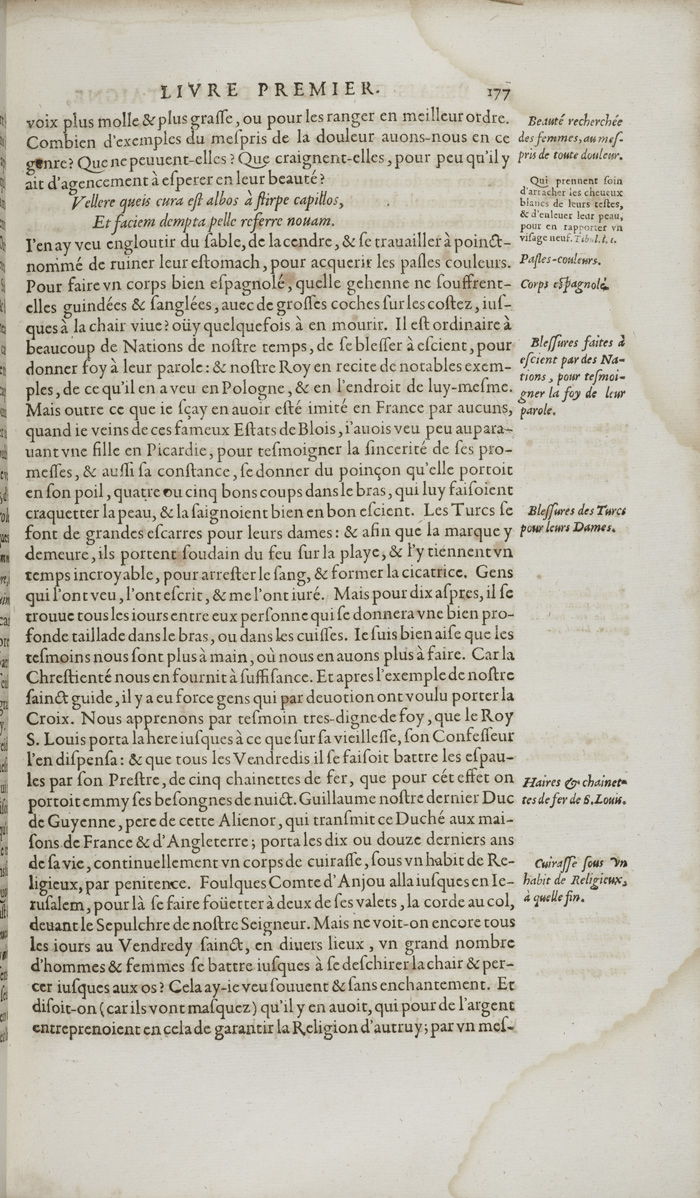 LIVRE PREMIER. 177
voix plus molle & plus grasse, ou pour les ranger en meilleur ordre.
Combien d'exemples du meſpris de la douleur auons-nous en ce
genre? Que ne peuuent-elles? Que craignent-elles, pour peu qu'il y
ait d'agencement à eſperer en leur beauté?
Vellere queis cura eſt albos à ſtirpe capillos,
Et faciem dempta pelle referre nouam.
I'en ay veu engloutir du ſable, de la cendre, & ſe trauailler à poinct-
nommé de ruiner leur eſtomach, pour acquerir les paſles couleurs.
Pour faire vn corps bien eſpagnolé, quelle gehenne ne ſouffrent-
elles guindées & ſanglées, auec de groſſes coches ſur les coſtez, iuſ-
ques à la chair viue? oüy quelquefois à en mourir. Il eſt ordinaire à
beaucoup de Nations de noſtre temps, de ſe bleſſer à eſcient, pour
donner foy à leur parole: & noſtre Roy en recite de notables exem-
ples, de ce qu'il en a veu en Pologne, & en l'endroit de luy-meſme.
Mais outre ce que ie ſçay en auoir eſté imité en France par aucuns,
quand ie veins de ces fameux Eſtats de Blois, i'auois veu peu aupara-
uant vne fille en Picardie, pour teſmoigner la ſincerité de ſes pro-
meſſes, & auſſi ſa conſtance, ſe donner du poinçon qu'elle portoit
en ſon poil, quatre ou cinq bons coups dans le bras, qui luy faiſoient
craquetter la peau, & la ſaignoient bien en bon eſcient. Les Turcs ſe
font de grandes eſcarres pour leurs dames: & afin que la marque y
demeure, ils portent ſoudain du feu ſur la playe, & l'y tiennent vn
temps incroyable, pour arreſter le ſang, & former la cicatrice. Gens
qui l'ont veu, l'ont eſcrit, & me l'ont iuré. Mais pour dix aſpres, il ſe
trouue tous les iours entre eux perſonne qui ſe donnera vne bien pro-
fonde taillade dans le bras, ou dans les cuiſſes. Ie ſuis bien aiſe que les
teſmoins nous ſont plus à main, où nous en auons plus à faire. Car la
Chreſtienté nous en fournit à ſuffiſance. Et apres l'exemple de noſtre
ſainct guide, il y a eu force gens qui par deuotion ont voulu porter la
Croix. Nous apprenons par teſmoin tres-digne de foy, que le Roy
S. Louis porta la here iuſques à ce que ſur ſa vieilleſſe, ſon Confeſſeur
l'en diſpenſa: & que tous les Vendredis il ſe faiſoit battre les eſpau-
les par ſon Preſtre, de cinq chainettes de fer, que pour cét effet on
portoit emmy ſes beſongnes de nuict. Guillaume noſtre dernier Duc
de Guyenne, pere de cette Alienor, qui tranſmit ce Duché aux mai-
ſons de France & d'Angleterre; porta les dix ou douze derniers ans
de ſa vie, continuellement vn corps de cuiraſſe, ſous vn habit de Re-
ligieux, par penitence. Foulques Comte d'Anjou alla iuſques en Ie-
ruſalem, pour là ſe faire foüetter à deux de ſes valets, la corde au col,
deuant le Sepulchre de noſtre Seigneur. Mais ne voit-on encore tous
les iours au Vendredy ſainct, en diuers lieux, vn grand nombre
d'hommes & femmes ſe battre iuſques à ſe deſchirer la chair & per-
cer iuſques aux os? Cela ay-ie veu ſouuent & ſans enchantement. Et
diſoit-on (car ils vont maſquez) qu'il y en auoit, qui pour de l'argent
entreprenoient en cela de garantir la Religion d'autruy; par vn meſ-
Beauté recherchée
des femmes, au meſ-
pris de toute douleur.
Qui prennent ſoin
d'arracher les cheueux
blancs de leurs teſtes,
& d'enleuer leur peau,
pour en rapporter vn
viſage neuf. Tibul. l. 1.
Paſles-couleurs.
Corps eſpagnolé.
Bleſſures faites à
eſcient par des Na-
tions, pour teſmoi-
gner la foy de leur
parole.
Bleſſures des Turcs
pour leurs Dames.
Haires & chainet-
tes de fer de S. Louis.
Cuiraſſe ſous vn
habit de Religieux,
à quelle fin.